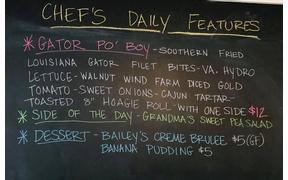 CHEF'S DAILY FEATURES
* GATOR PO' BOY - SOUTHERN FRIED
LOUISIANA GATOR FILET BITES - VA. HYDRO
LETTUCE - WALNUT WIND FARM DICED GOLD
TOMATO - SWEET ONIONS - CAJUN TARTAR -
TOASTED 8" HOAGIE ROLL - WITH ONE SIDE $12
* SIDE OF THE DAY - GRANDMA'S SWEET PEA SALAD
* DESSERT - BAILEY'S CREME BRULEE $5 (GF)
BANANA PUDDING $5